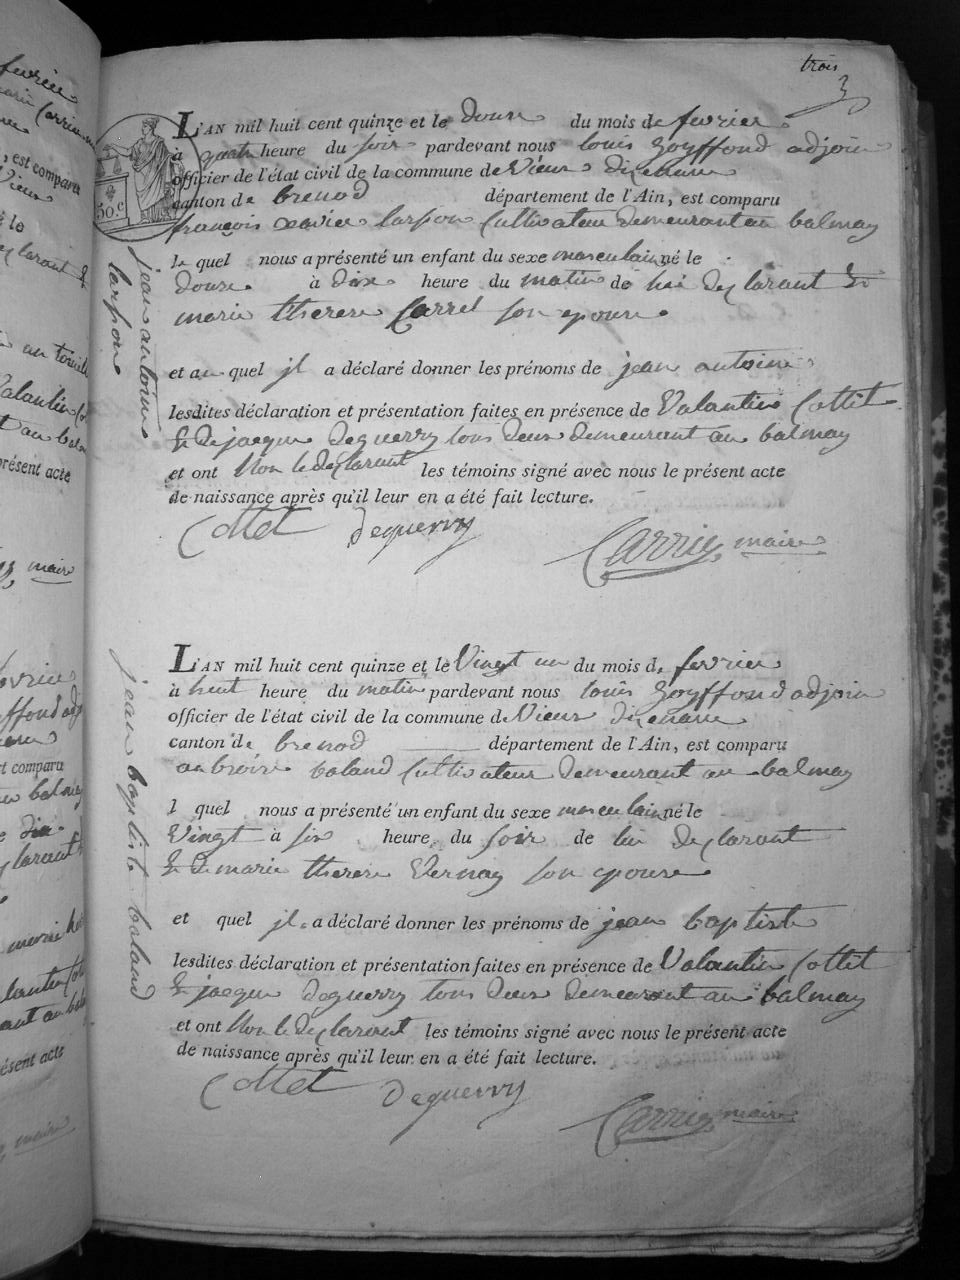 trois
3
L'AN mil huit cent quinze et le douze du mois de fevrier
à quatre heure du soir pardevant nous louis goyffond adjoin
officier de l'état civil de la commune de Vieux dizenave
canton de brenod département de l'Ain, est comparu
50.c
françois xavier larpon Cultivateur demeurant au balmay
le quel nous a présenté un enfant du sexe masculain, né le
douze à dix heure du matin de lui declarant &
marie therese Carrel son epouse
et au quel jl a déclaré donner les prénoms de jean antoine
lesdites déclaration et présentation faites en présence de Valantin Cottet
& de jacque deguerry tous deux demeurant au balmay
et ont Non le declarant les témoins signé avec nous le présent acte
de naissance après qu'il leur en a été fait lecture.
Cottet deguerry Carrier maire
jean antoine
larpon
L'AN mil huit cent quinze et le Vingt un du mois de fevrier
à huit heure du matin pardevant nous louis goyffond adjoin
officier de l'état civil de la commune de Vieux dizenave
canton de brenod département de l'Ain, est comparu
anbroise baland Cultivateur demeurant au balmay
l quel nous a présenté un enfant du sexe masculain, né le
Vingt à six heure du soir de lui declarant
& de marie therese Vernay son epouse
et quel jl a déclaré donner les prénoms de jean baptiste
lesdites déclaration et présentation faites en présence de Valantin Cottet
& jacque deguerry tous deux demeurant au balmay
et ont Non le declarant les témoins signé avec nous le présent acte
de naissance après qu'il leur en a été fait lecture.
Cottet deguerry Carrier maire
jean baptiste baland